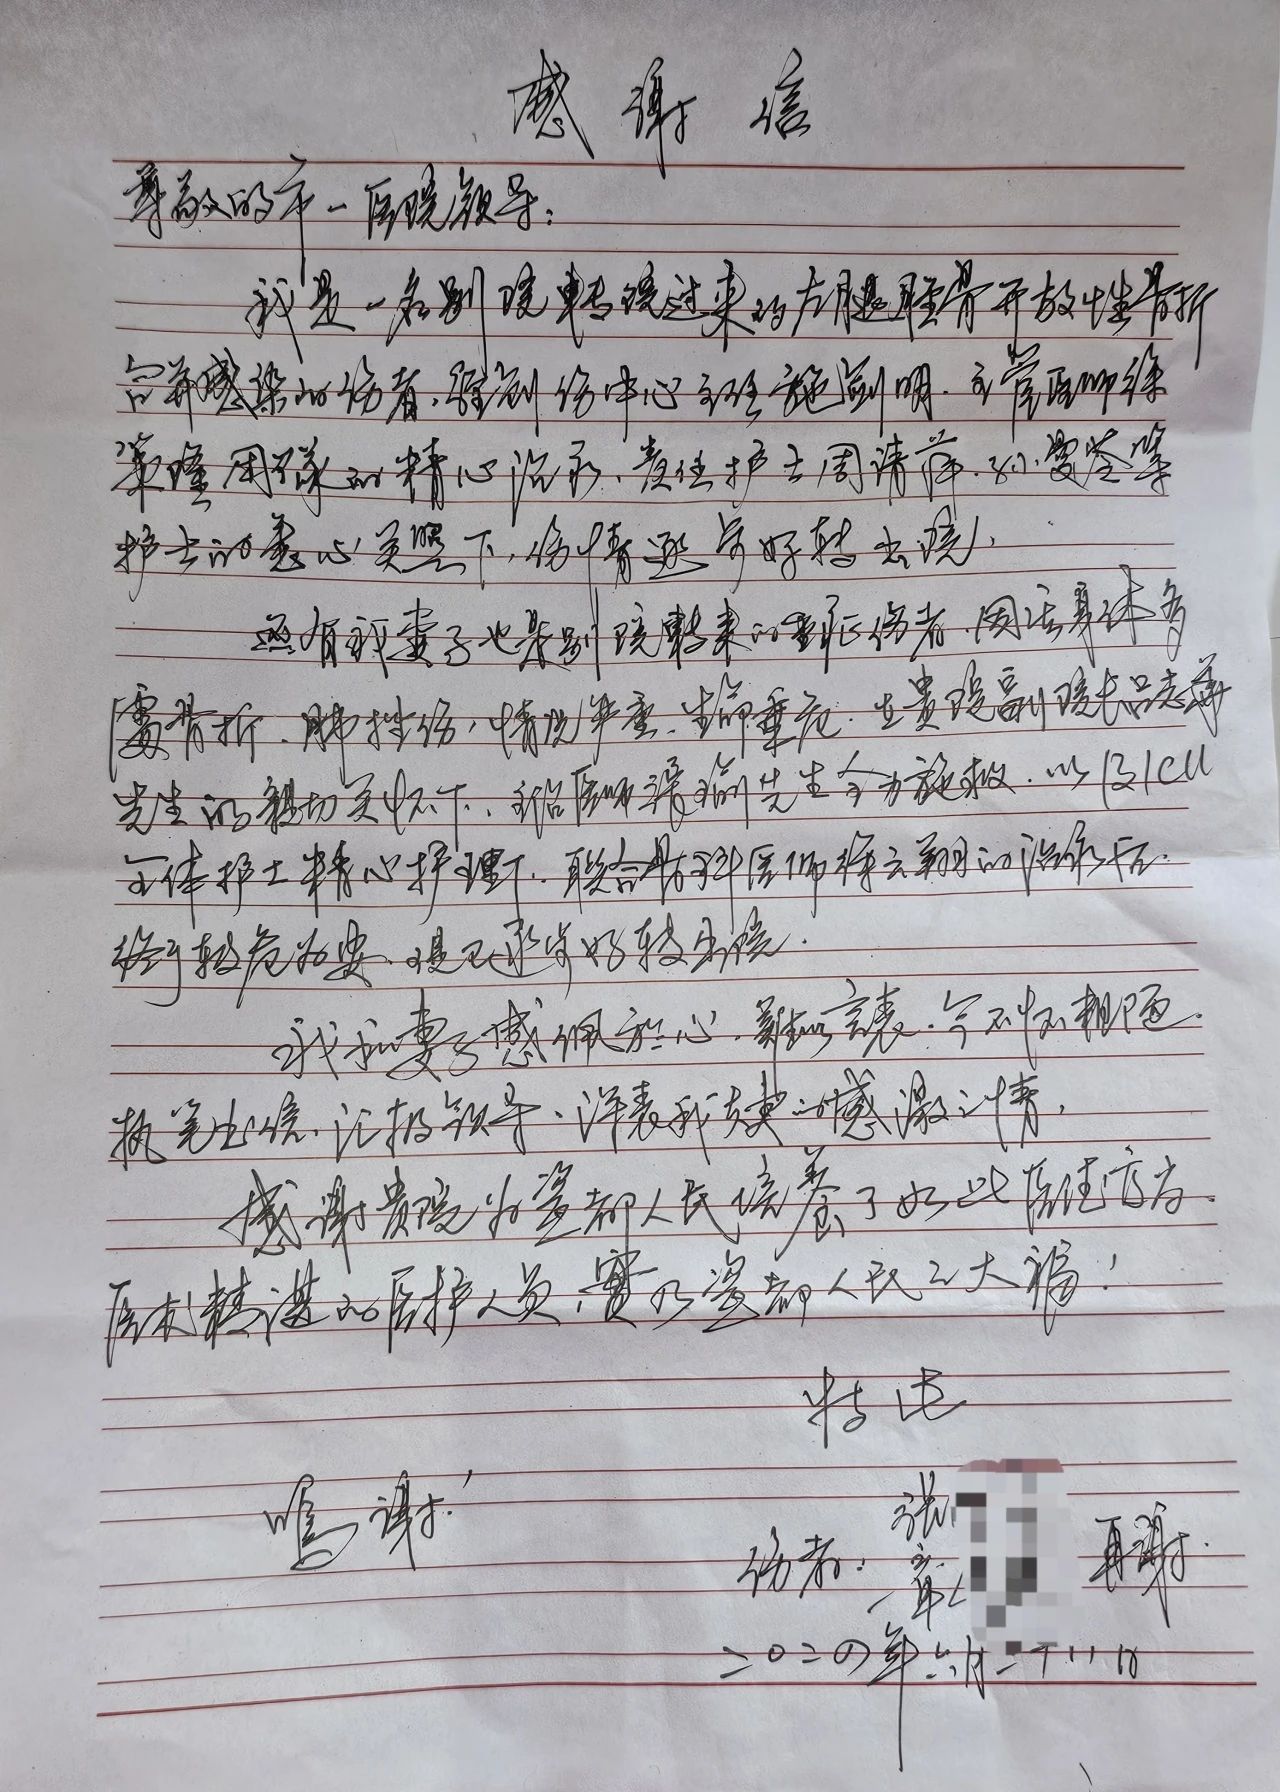 感谢信
尊敬的市一医院领导：
我是一名别院转院过来的左腿胫骨开放性骨折
合并感染的伤者，经创伤中心主任施剑明、主管医师徐
团队的精心治疗、责任护士周清萍、等
护士的悉心关照下，伤情逐步好转出院，
还有我妻子也是别院转来的重症伤者，因全身体多
处骨折、肺挫伤，情况严重，生命垂危，在贵院副院长吕志
先生的亲切关怀下，主治医师梁瑜先生全力施救，以及ICU
全体护士精心护理下，联合骨科医师徐云翔的治疗后，
终于转危为安，现已逐步好转出院。
我和妻子感佩于心，難以言表，今不怀粗陋，
执笔出信，汇报领导，详表我夫妻的感激之情，
感谢贵院为瓷都人民培养了如此医德高尚、
医术精湛的医护人员，實乃瓷都人民之大福！
特此
鸣谢！
伤者：张 再谢
章
二〇二四年六月二十八日